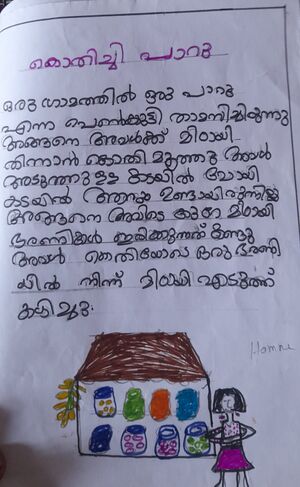 കൊതിച്ചി പാറു
ഒരു ഗ്രാമത്തിൽ ഒരു പാറു
എന്ന പെൺകുട്ടി താമസിച്ചിരുന്നു
അങ്ങനെ അവൾക്ക് മിഠായി
തിന്നാൻ കൊതി മൂത്തു അവൾ
അടുത്തുള്ള കടയിൽ പോയി
കടയിൽ ആരും
അവിടെ കുറേ മിഠായി
ഭരണികൾ ഇരിക്കുന്നത് കണ്ടു
അവൾ കൊതിയോടെ ഒരു ഭരണി
യിൽ നിന്ന് മിഠായി എടുത്ത്
കഴിച്ചു.